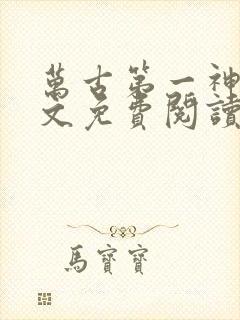 萬古第一神
文免費閱讀
馬寶寶